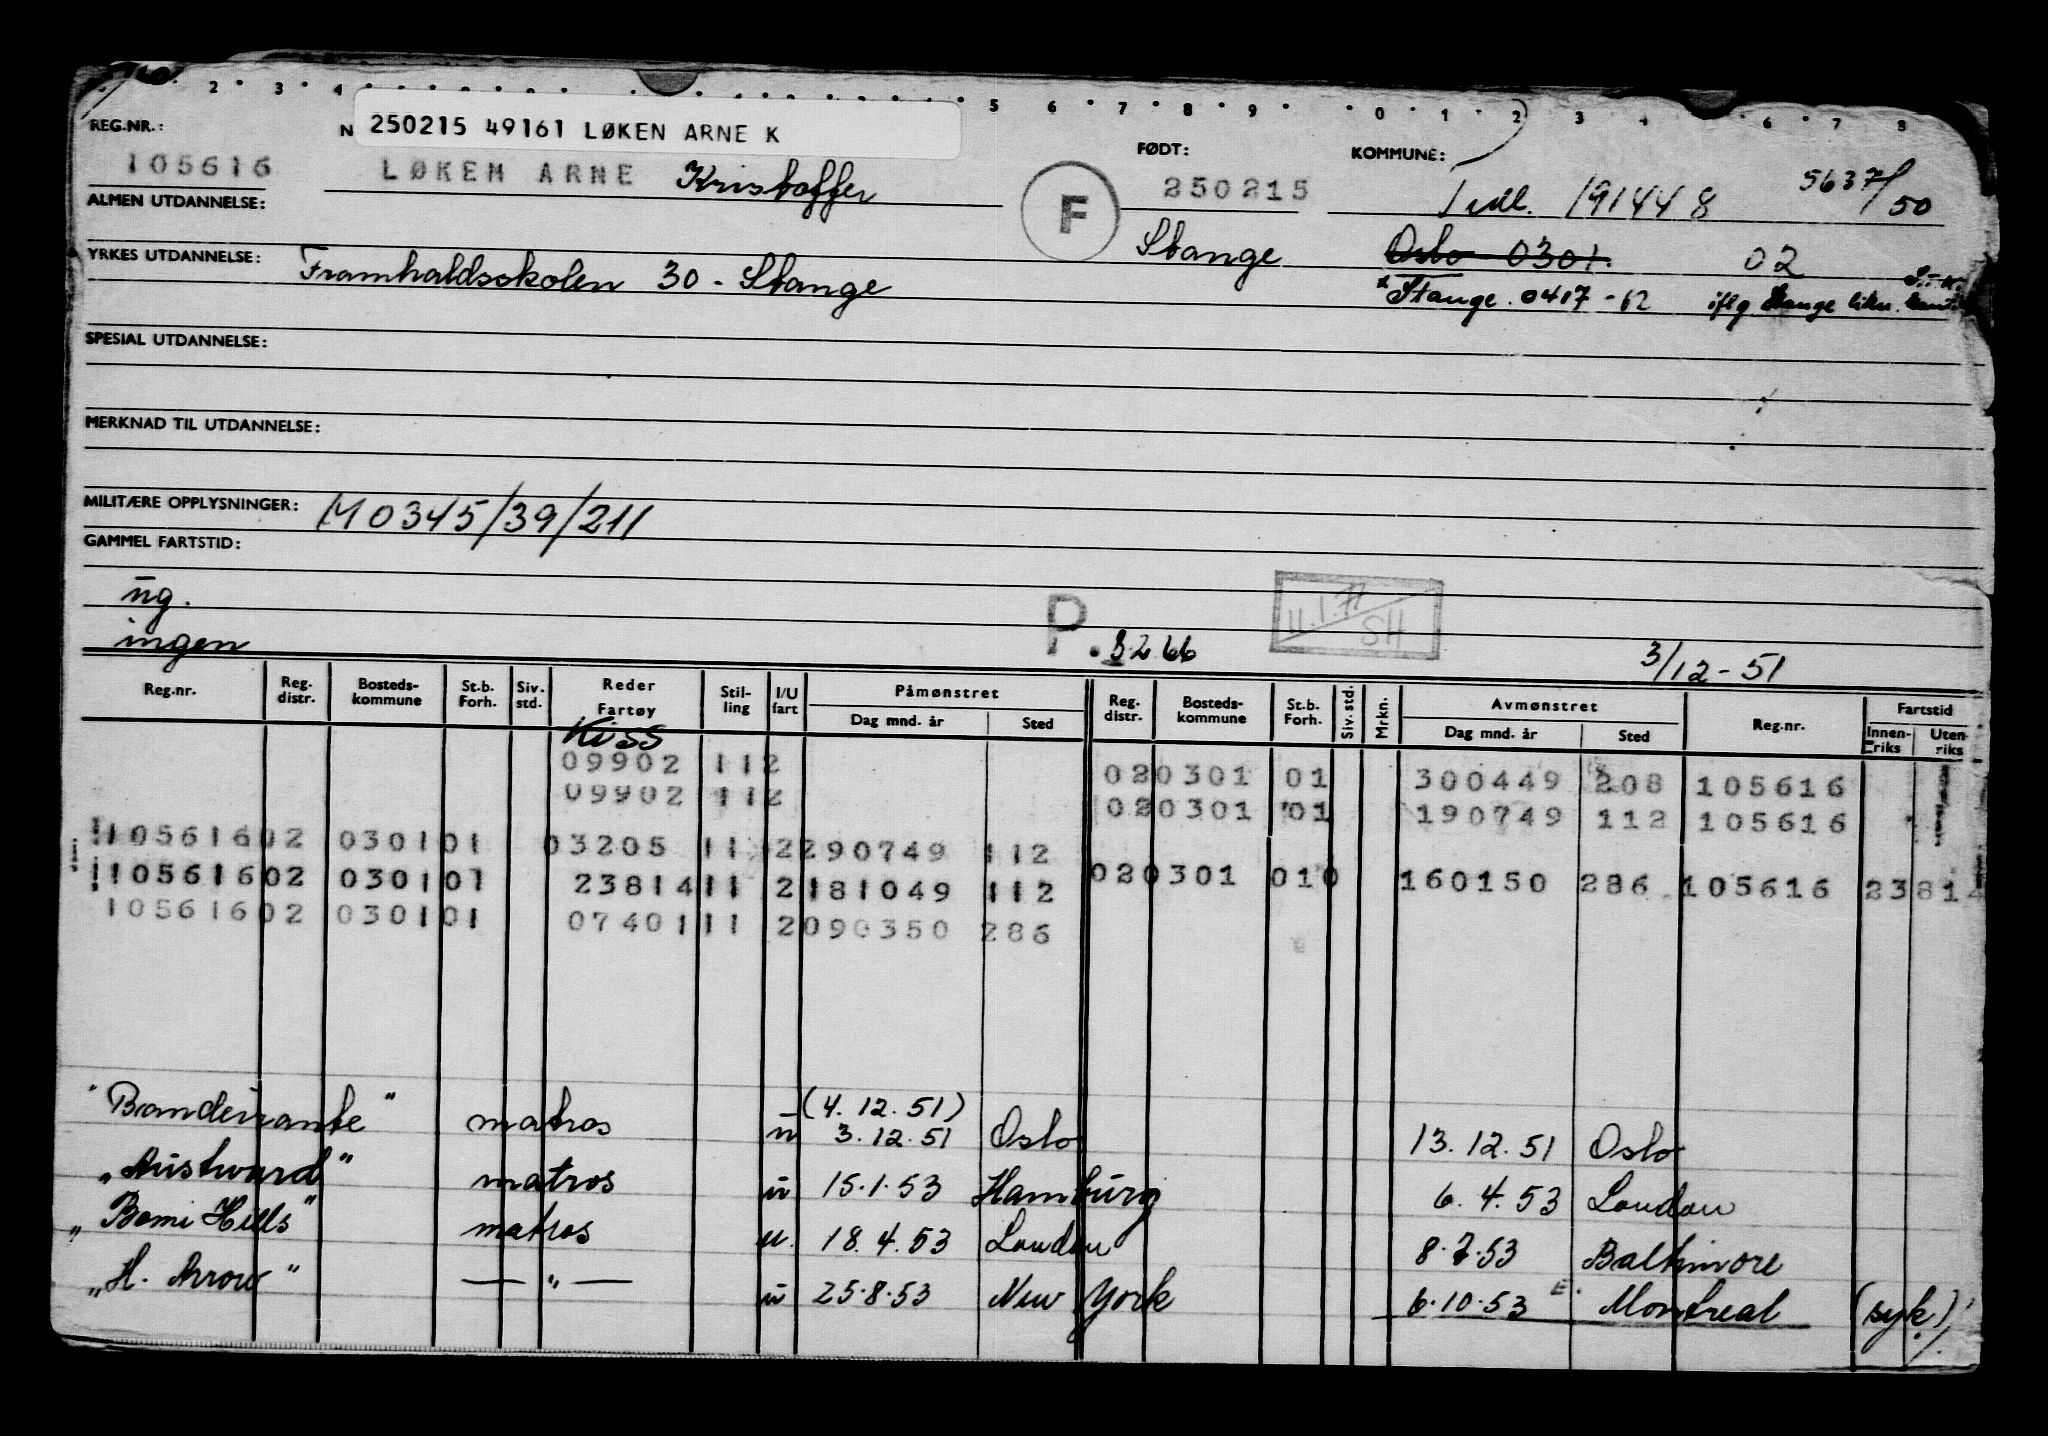 2 3 4 5 6 7 8 9 0 1 2 3 4 6 7 8
REG.NR.: N 250215 49161 LØKEN ARNE K FØDT: KOMMUNE:
105616 LØKEN ARNE Kristoffer F 250215 Tidl. 191448 5637/50
ALMEN UTDANNELSE: Stange Oslo 0301. 02
YRKES UTDANNELSE: Framhaldsskolen 30 - Stange Stange. 0417-62 iflg Stange likn.
SPESIAL UTDANNELSE:
MERKNAD TIL UTDANNELSE:
MILITÆRE OPPLYSNINGER: M0345/39/211
GAMMEL FARTSTID:
ūg.
ingen P. 8.2.66 3/12-51
Reg.nr. Reg. distr. Bosteds-kommune St.b. Forh. Siv. std. Reder Fartøy Stil-ling I/U fart Påmønstret Dag mnd. år Sted Reg. distr. Bosteds-kommune St.b. Forh. Siv. std. Mrkn. Avmønstret Dag mnd. år Sted Reg.nr. Fartstid Innen-riks Uten-riks
Kiss
09902 112 020301 01 300449 208 105616
09902 112 020301 01 190749 112 105616
10561602 030101 03205 11 2290749 112
10561602 030101 2381411 2181049 112 020301 010 160150 286 105616 23814
10561602 030101 0740111 2090350 286
"Bandeirante" matros ū (4.12.51) 3.12.51 Oslo 13.12.51 Oslo
"Austvard" matros ū 15.1.53 Hamburg 6.4.53 London
"Bomi Hills" matros u. 18.4.53 London 8.7.53 Baltimore
"H. Arrow" — " — ū 25.8.53 New York 6.10.53 E. Montreal (syk)